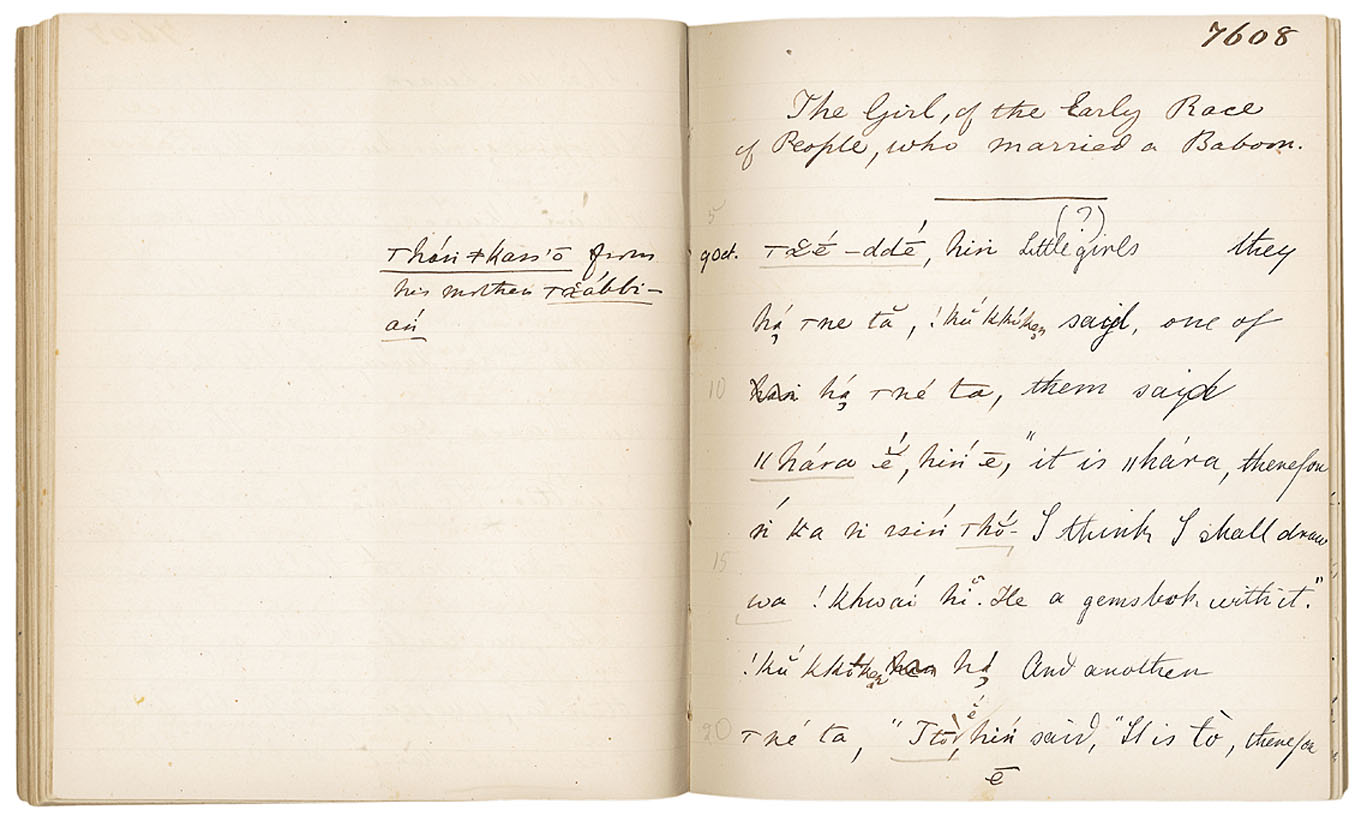 Ʇhánǂkassꞌō from
his mother Ʇxábbi-
aṅ
7608
The Girl, of the Early Race
of People, who married a Baboon.
5
(?)
9 Oct. Ʇxé-ddé, hiṅ Little girls they
há Ʇne tă, !kŭ kkóken said, one of
10 há Ʇné ta, them said
ǁhára ĕ́, hiṅ́ ē, "it is ǁhára, therefore
ṅ ka ṅ ssiṅ́ Ʇhŏ́- I think I shall draw
15
wa !khwaí hĭ. He a gemsbok with it."
!kŭ kkóken há And another
20 Ʇné ta, "Ttò ĕ́, hiṅ́ said, "It is tò, therefore
ē